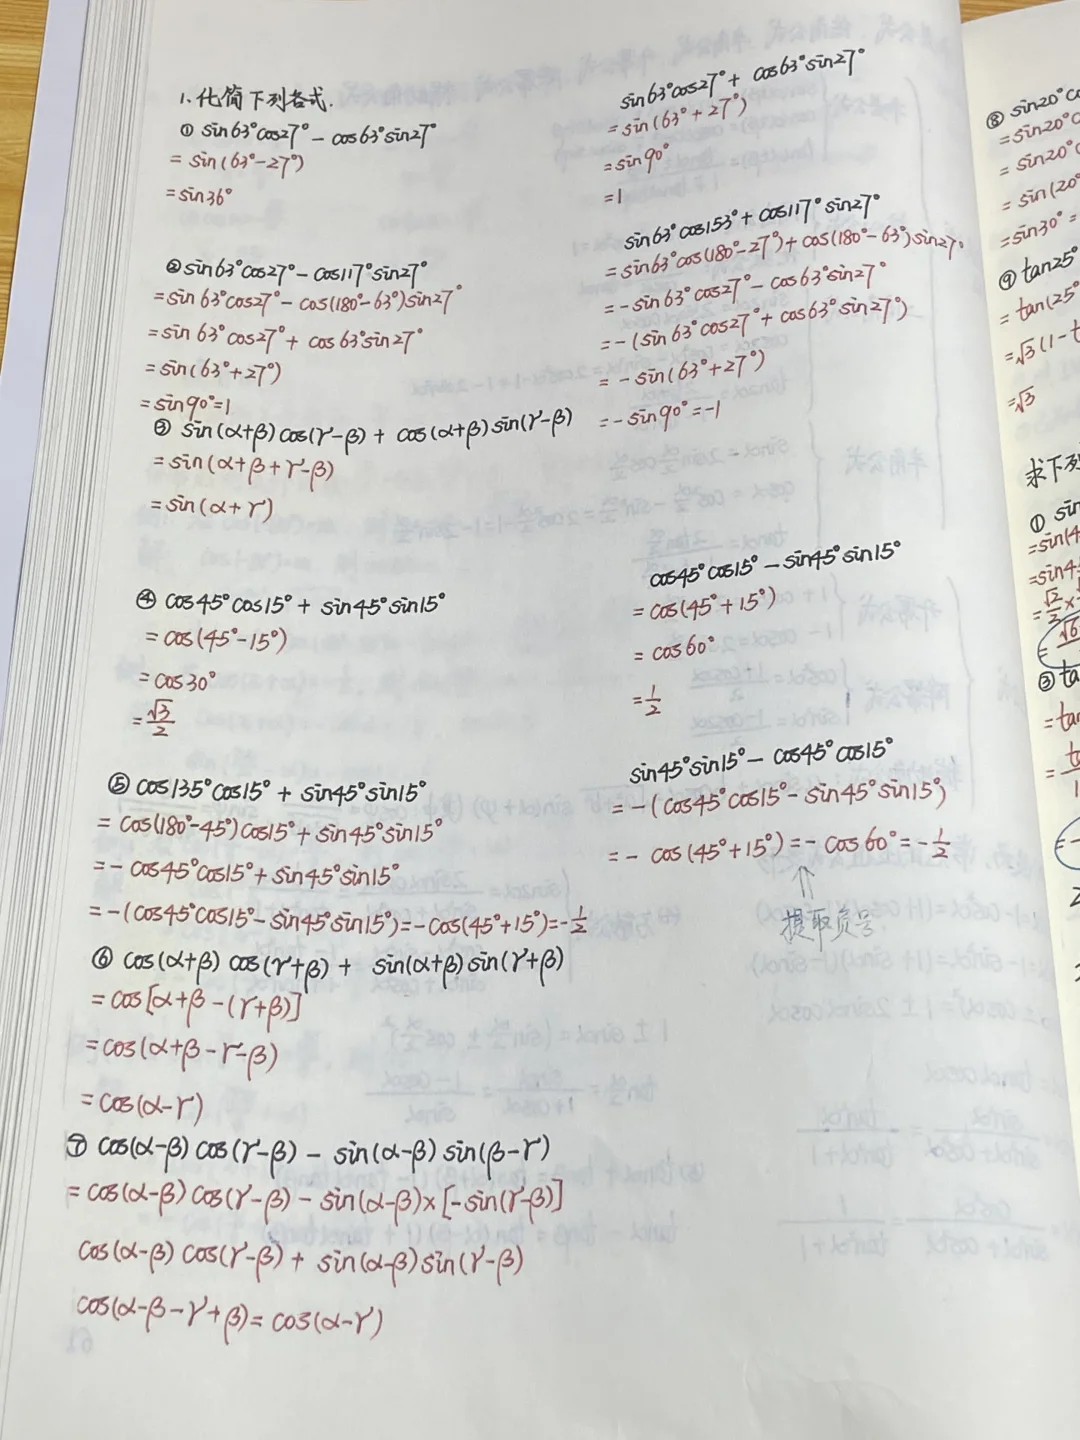 1.化简下列各式.
① sin63°cos27° - cos63°sin27°
= sin(63°-27°)
= sin36°
sin63°cos27° + cos63°sin27°
= sin(63°+27°)
= sin90°
= 1
② sin63°cos27° - cos117°sin27°
= sin63°cos27° - cos(180°-63°)sin27°
= sin63°cos27° + cos63°sin27°
= sin(63°+27°)
= sin90°=1
sin63°cos153° + cos117°sin27°
= sin63°cos(180°-27°) + cos(180°-63°)sin27°
= -sin63°cos27° - cos63°sin27°
= -(sin63°cos27° + cos63°sin27°)
= -sin(63°+27°)
= -sin90°=-1
③ sin(α+β)cos(γ-β) + cos(α+β)sin(γ-β)
= sin(α+β+γ-β)
= sin(α+γ)
④ cos45°cos15° + sin45°sin15°
= cos(45°-15°)
= cos30°
= √3/2
cos45°cos15° - sin45°sin15°
= cos(45°+15°)
= cos60°
= 1/2
⑤ cos135°cos15° + sin45°sin15°
= cos(180°-45°)cos15° + sin45°sin15°
= -cos45°cos15° + sin45°sin15°
= -(cos45°cos15° - sin45°sin15°) = -cos(45°+15°) = -1/2
sin45°sin15° - cos45°cos15°
= -(cos45°cos15° - sin45°sin15°)
= -cos(45°+15°) = -cos60° = -1/2
提取负号
⑥ cos(α+β)cos(γ+β) + sin(α+β)sin(γ+β)
= cos[α+β-(γ+β)]
= cos(α+β-γ-β)
= cos(α-γ)
⑦ cos(α-β)cos(γ-β) - sin(α-β)sin(β-γ)
= cos(α-β)cos(γ-β) - sin(α-β)×[-sin(γ-β)]
cos(α-β)cos(γ-β) + sin(α-β)sin(γ-β)
cos(α-β-γ+β) = cos(α-γ)
⑧ sin20°
= sin20°
= sin20°
= sin(20°
= sin30° =
⑨ tan25°
= tan(25°
= √3(1-t
= √3
求下列
① sin
= sin(4
= sin4
③ ta
= tan